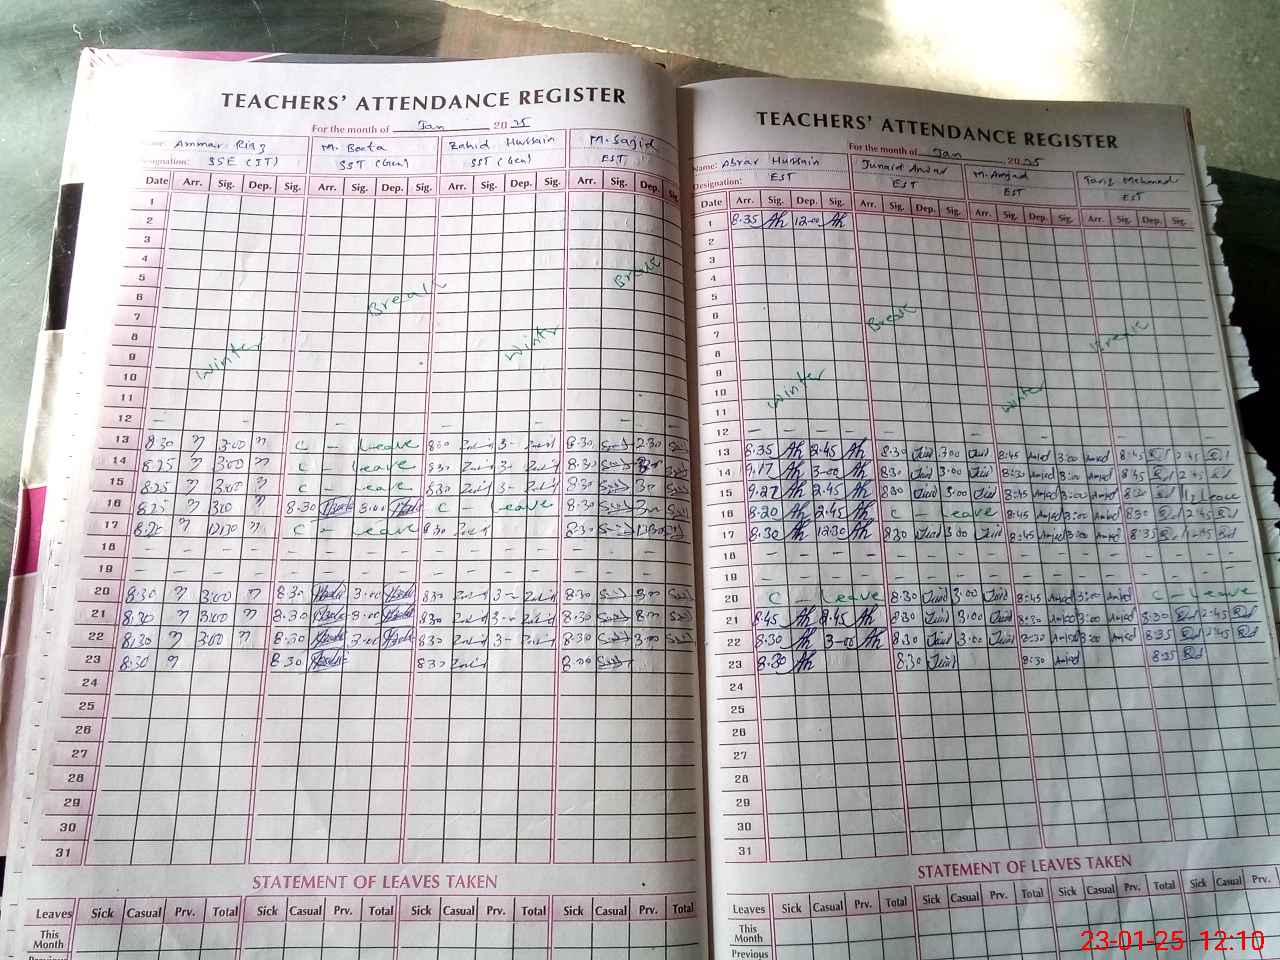 TEACHERS' ATTENDANCE REGISTER
For the month of Jan 2025
Name: Ammar Riaz M. Boota Zahid Hussain M. Sajid
Designation: SSE (IT) SST (Gen) SST (Gen) EST
Date Arr. Sig. Dep. Sig. Arr. Sig. Dep. Sig. Arr. Sig. Dep. Sig. Arr. Sig. Dep. Sig.
1
2
3
4
5
6
7
8
9
10
11
Winter Break Winter Break
12 – – – –
13 8:30 3:00 C – Leave 8:30 3– 8:30 2:30
14 8:25 3:00 C – Leave 8:30 3– 8:30
15 8:25 3:00 C – Leave 8:30 3– 8:30
16 8:25 3:00 8:30 3:00 C – Leave 8:30
17 8:25 12:30 C – Leave 8:30 8:30 12:30
18 – – – –
19 – – – –
20 8:30 3:00 8:30 3:00 8:30 3– 8:30
21 8:30 3:00 8:30 3:00 8:30 3– 8:30
22 8:30 3:00 8:30 3:00 8:30 3– 8:30
23 8:30 8:30 8:30
24
25
26
27
28
29
30
31
STATEMENT OF LEAVES TAKEN
Leaves Sick Casual Prv. Total Sick Casual Prv. Total Sick Casual Prv. Total Sick Casual Prv. Total
This Month
Previous
TEACHERS' ATTENDANCE REGISTER
For the month of Jan 2025
Name: Abrar Hussain Junaid Anwar M. Amjad Tariq Mehmood
Designation: EST EST EST EST
Date Arr. Sig. Dep. Sig. Arr. Sig. Dep. Sig. Arr. Sig. Dep. Sig. Arr. Sig. Dep. Sig.
1 8:35 Ah 12:00 Ah
2
3
4
5
6
7
8
9
10
11
Winter Break Winter Break
12 – – – –
13 8:35 Ah 2:45 Ah 8:30 3:00 8:45 Amjad 3:00 Amjad 8:45 2:45
14 9:17 Ah 3:00 Ah 8:30 3:00 8:30 Amjad 3:00 Amjad 8:45 2:45
15 9:27 Ah 2:45 Ah 8:30 3:00 8:45 Amjad 3:00 Amjad 8:30 Leave
16 8:20 Ah 2:45 Ah C – Leave 8:45 Amjad 3:00 Amjad 8:30 2:45
17 8:30 Ah 12:30 Ah 8:30 3:00 8:45 Amjad 3:00 Amjad 8:35
18 – – – –
19 – – – –
20 C – Leave 8:30 3:00 8:45 Amjad 3:00 Amjad C – Leave
21 8:45 Ah 2:45 Ah 8:30 3:00 8:30 Amjad 3:00 Amjad 8:30 2:45
22 8:30 Ah 3:00 Ah 8:30 3:00 8:30 Amjad 3:00 Amjad 8:35 2:45
23 8:30 Ah 8:30 8:30 Amjad 8:35
24
25
26
27
28
29
30
31
STATEMENT OF LEAVES TAKEN
Leaves Sick Casual Prv. Total Sick Casual Prv. Total Sick Casual Prv. Total Sick Casual Prv.
This Month
Previous
23-01-25 12:10